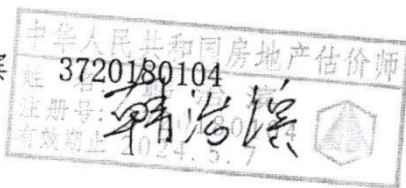 中华人民共和国房地产估价师
3720180104
姓名
注册号:
韩浩溪
有效期止 2024.5.7